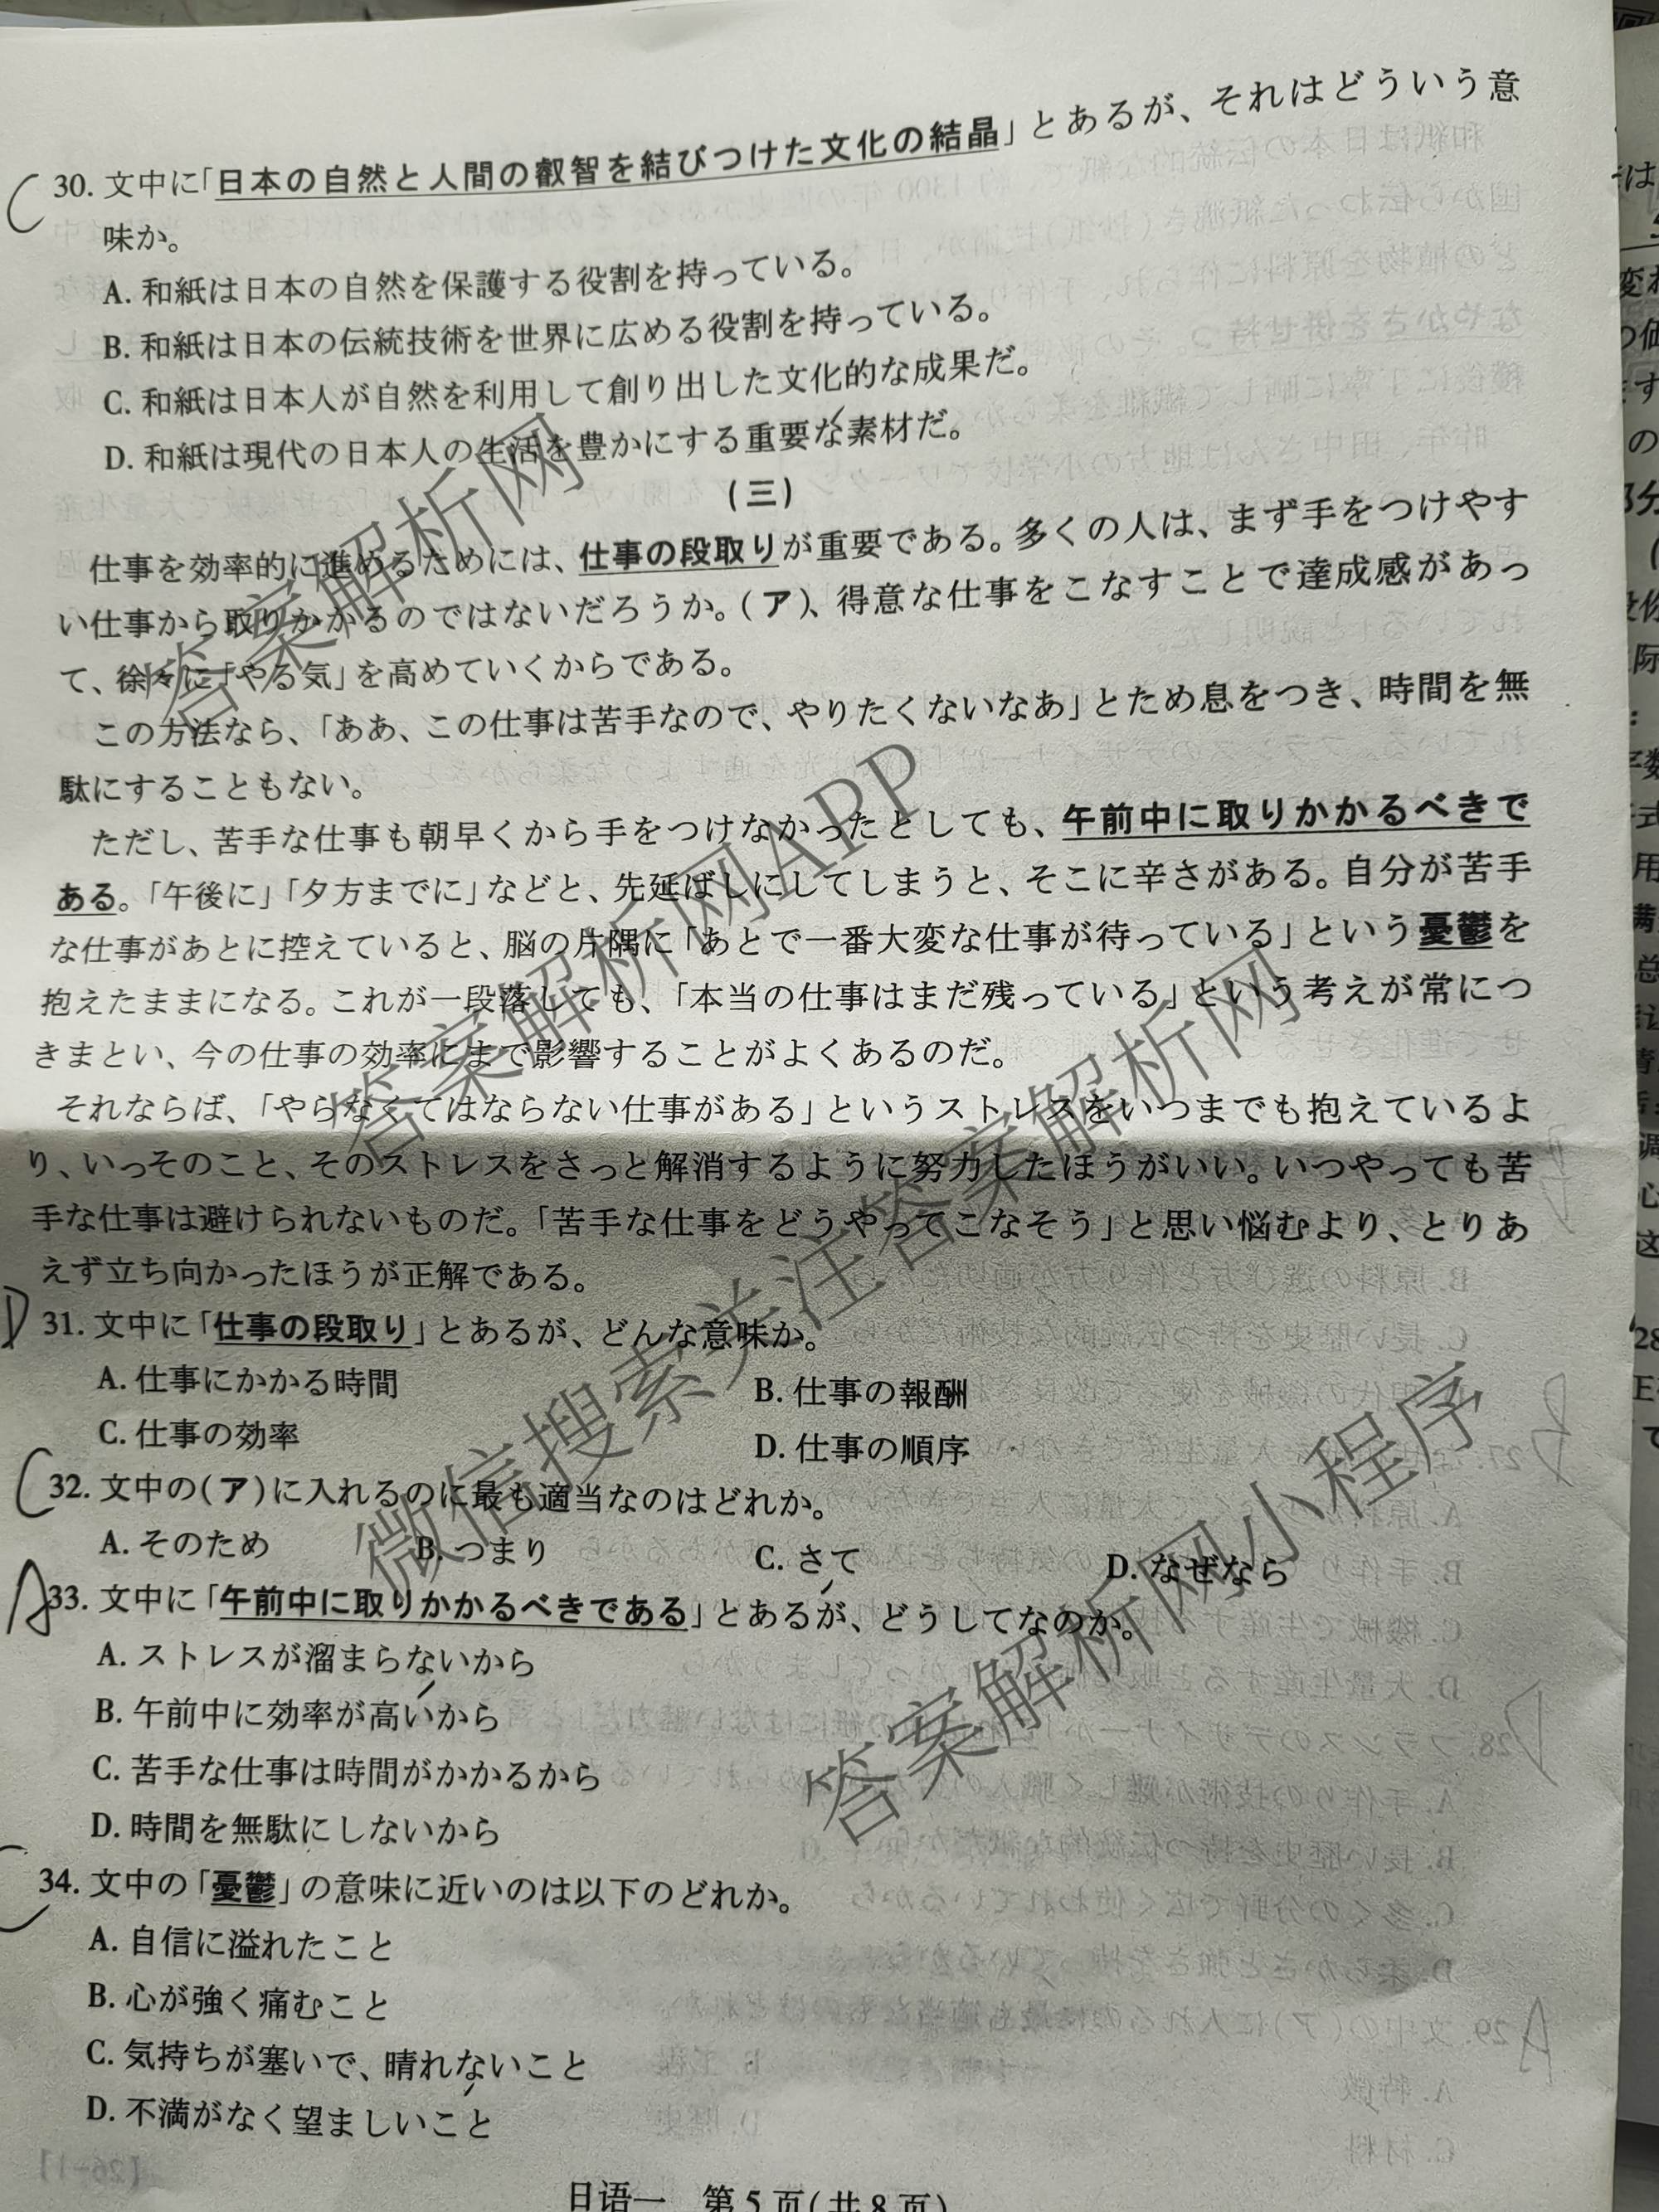 C
30. 文中に「日本の自然と人間の叡智を結びつけた文化の結晶」とあるが、それはどういう意
味か。
A. 和紙は日本の自然を保護する役割を持っている。
B. 和紙は日本の伝統技術を世界に広める役割を持っている。
C. 和紙は日本人が自然を利用して創り出した文化的な成果だ。
D. 和紙は現代の日本人の生活を豊かにする重要な素材だ。
(三)
仕事を効率的に進めるためには、仕事の段取りが重要である。多くの人は、まず手をつけやす
い仕事から取りかかるのではないだろうか。(ア)、得意な仕事をこなすことで達成感があっ
て、徐々に「やる気」を高めていくからである。
この方法なら、「ああ、この仕事は苦手なので、やりたくないなあ」とため息をつき、時間を無
駄にすることもない。
ただし、苦手な仕事も朝早くから手をつけなかったとしても、午前中に取りかかるべきで
ある。「午後に」「夕方までに」などと、先延ばしにしてしまうと、そこに辛さがある。自分が苦手
な仕事があとに控えていると、脳の片隅に「あとで一番大変な仕事が待っている」という憂鬱を
抱えたままになる。これが一段落しても、「本当の仕事はまだ残っている」という考えが常につ
きまとい、今の仕事の効率にまで影響することがよくあるのだ。
それならば、「やらなくてはならない仕事がある」というストレスをいつまでも抱えているよ
り、いっそのこと、そのストレスをさっと解消するように努力したほうがいい。いつやっても苦
手な仕事は避けられないものだ。「苦手な仕事をどうやってこなそう」と思い悩むより、とりあ
えず立ち向かったほうが正解である。
D
31. 文中に「仕事の段取り」とあるが、どんな意味か。
A. 仕事にかかる時間 B. 仕事の報酬
C. 仕事の効率 D. 仕事の順序
C
32. 文中の(ア)に入れるのに最も適当なのはどれか。
A. そのため B. つまり C. さて D. なぜなら
A
33. 文中に「午前中に取りかかるべきである」とあるが、どうしてなのか。
A. ストレスが溜まらないから
B. 午前中に効率が高いから
C. 苦手な仕事は時間がかかるから
D. 時間を無駄にしないから
C
34. 文中の「憂鬱」の意味に近いのは以下のどれか。
A. 自信に溢れたこと
B. 心が強く痛むこと
C. 気持ちが塞いで、晴れないこと
D. 不満がなく望ましいこと
日语一 第5页(共8页)
答案解析网
答案解析网APP
微信搜索关注答案解析网
答案解析网小程序